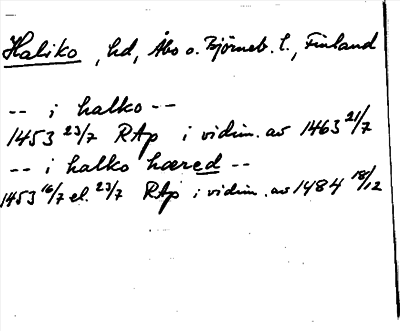 Haliko, hd, Åbo o. Björneb. l., Finland
-- i halko --
1453 23/7 RAp i vidim. av 1463 21/7
-- i halko hæred --
1453 16/7 el. 23/7 RAp i vidim. av 1484 18/12